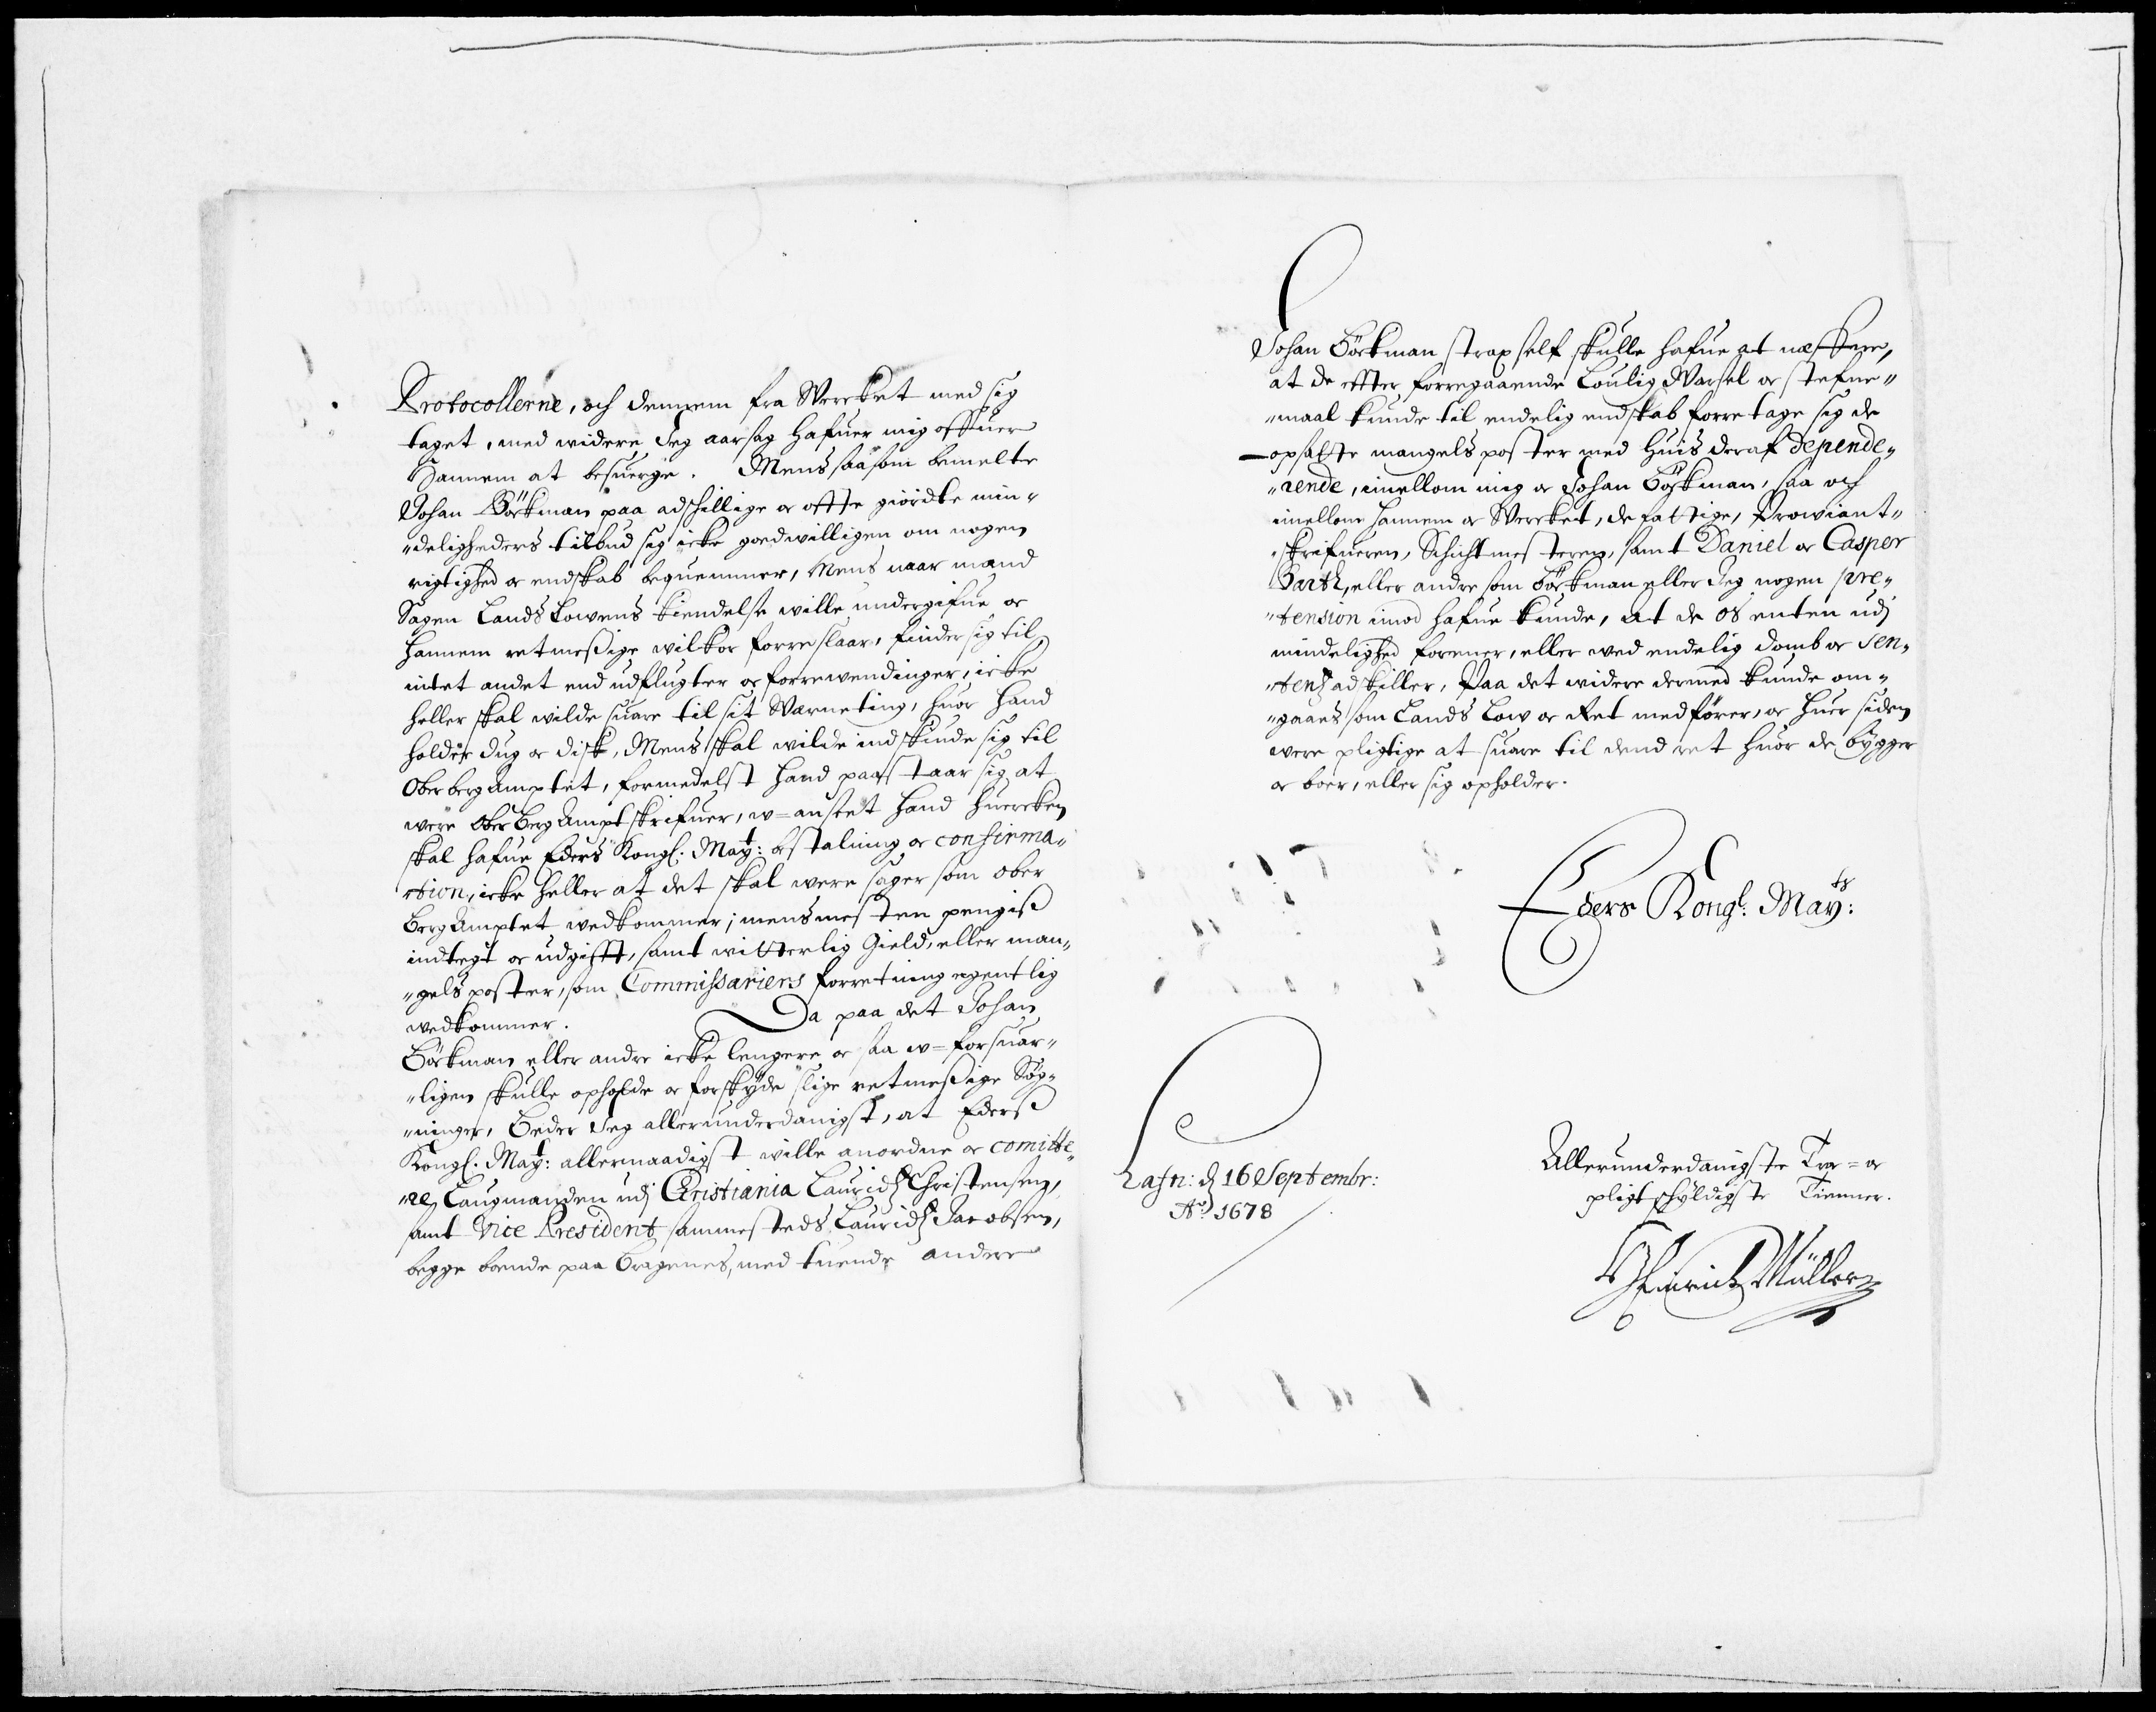 Protocollerne, och dennem fra Wercket med sig
taget, med widere Jeg aarsag hafuer mig offuer
Hannem at besuerge. Mens saasom bemelte
Johan Börkman paa adschillige oc offte giordte min-
deligheders tilbud sig icke goedwilligen om nogen
rigtighed oc endskab bequemmer, Mens naar mand
Sagen Lands Lowens kiendelse wille undergifue oc
hannem retmessige wilkor forreslaar, finder sig til
intet andet end udflugter oc forrewendinger, icke
heller skal wilde suare til sit Werneting, huor hand
holder dug oc disk, Mens skal wilde indskinde sig til
Oberbergamptet, formedelst hand paastaar sig at
were OberBergAmptskrifuer, w=anseet hand huercken
skal hafue Eders Kongl. Maytt: bestalning oc confirma-
tion, icke heller at det skal were sager som Ober
BergAmptet wedkommer; mens mesten pengiss
indtegt oc udgifft, samt witterlig Gield, eller man-
gels poster, som Commissariens forretning egentlig
wedkommer. Da paa det Johan
Börkman eller andre icke lengere oc saa w=forsuar-
ligen skulle opholde oc forskyde slige retmessige Søg-
ninger, Beder Jeg allerunderdanigst, at Ederss
Kongl. Maytt: allernaadigst wille anordne oc comitte-
re Laugmanden udj Christiania Lauridz Christensen,
samt Vice President sammesteds Lauridz Jacobsen,
begge boende paa Bragenes, med tuende andere
Johan Börkman strax self skulle hafue at neffne,
at de effter forregaaende Loulig Warsel oc stefne-
maal kunde til endelig endskab forretage sig de
opsatte mangels poster med huis deraf depende-
rende, imellom mig oc Johan Börkman, saa och
imellom hannem oc Wercket, de fattige, Prowiant-
skrifueren, Schichtmesteren, samt Daniel oc Casper
Barth, eller andre som Börkman eller Jeg nogen pre-
tension imod hafue kunde, at de os enten udj
mindelighed forener, eller wed endelig domb oc sen-
tenz adskiller, Paa det widere dermed kunde om-
gaaes som Lands Low oc Ret medfører, oc huer siden
were pligtige at suare til dend ret huor de bygger
oc boer, eller sig opholder.
Eders Kongl: Maytts:
Hafn: d 16 Septembr:
Ao 1678
Allerunderdanigste Troe= oc
pligtschyldigste Tienner.
Hinrich Müller